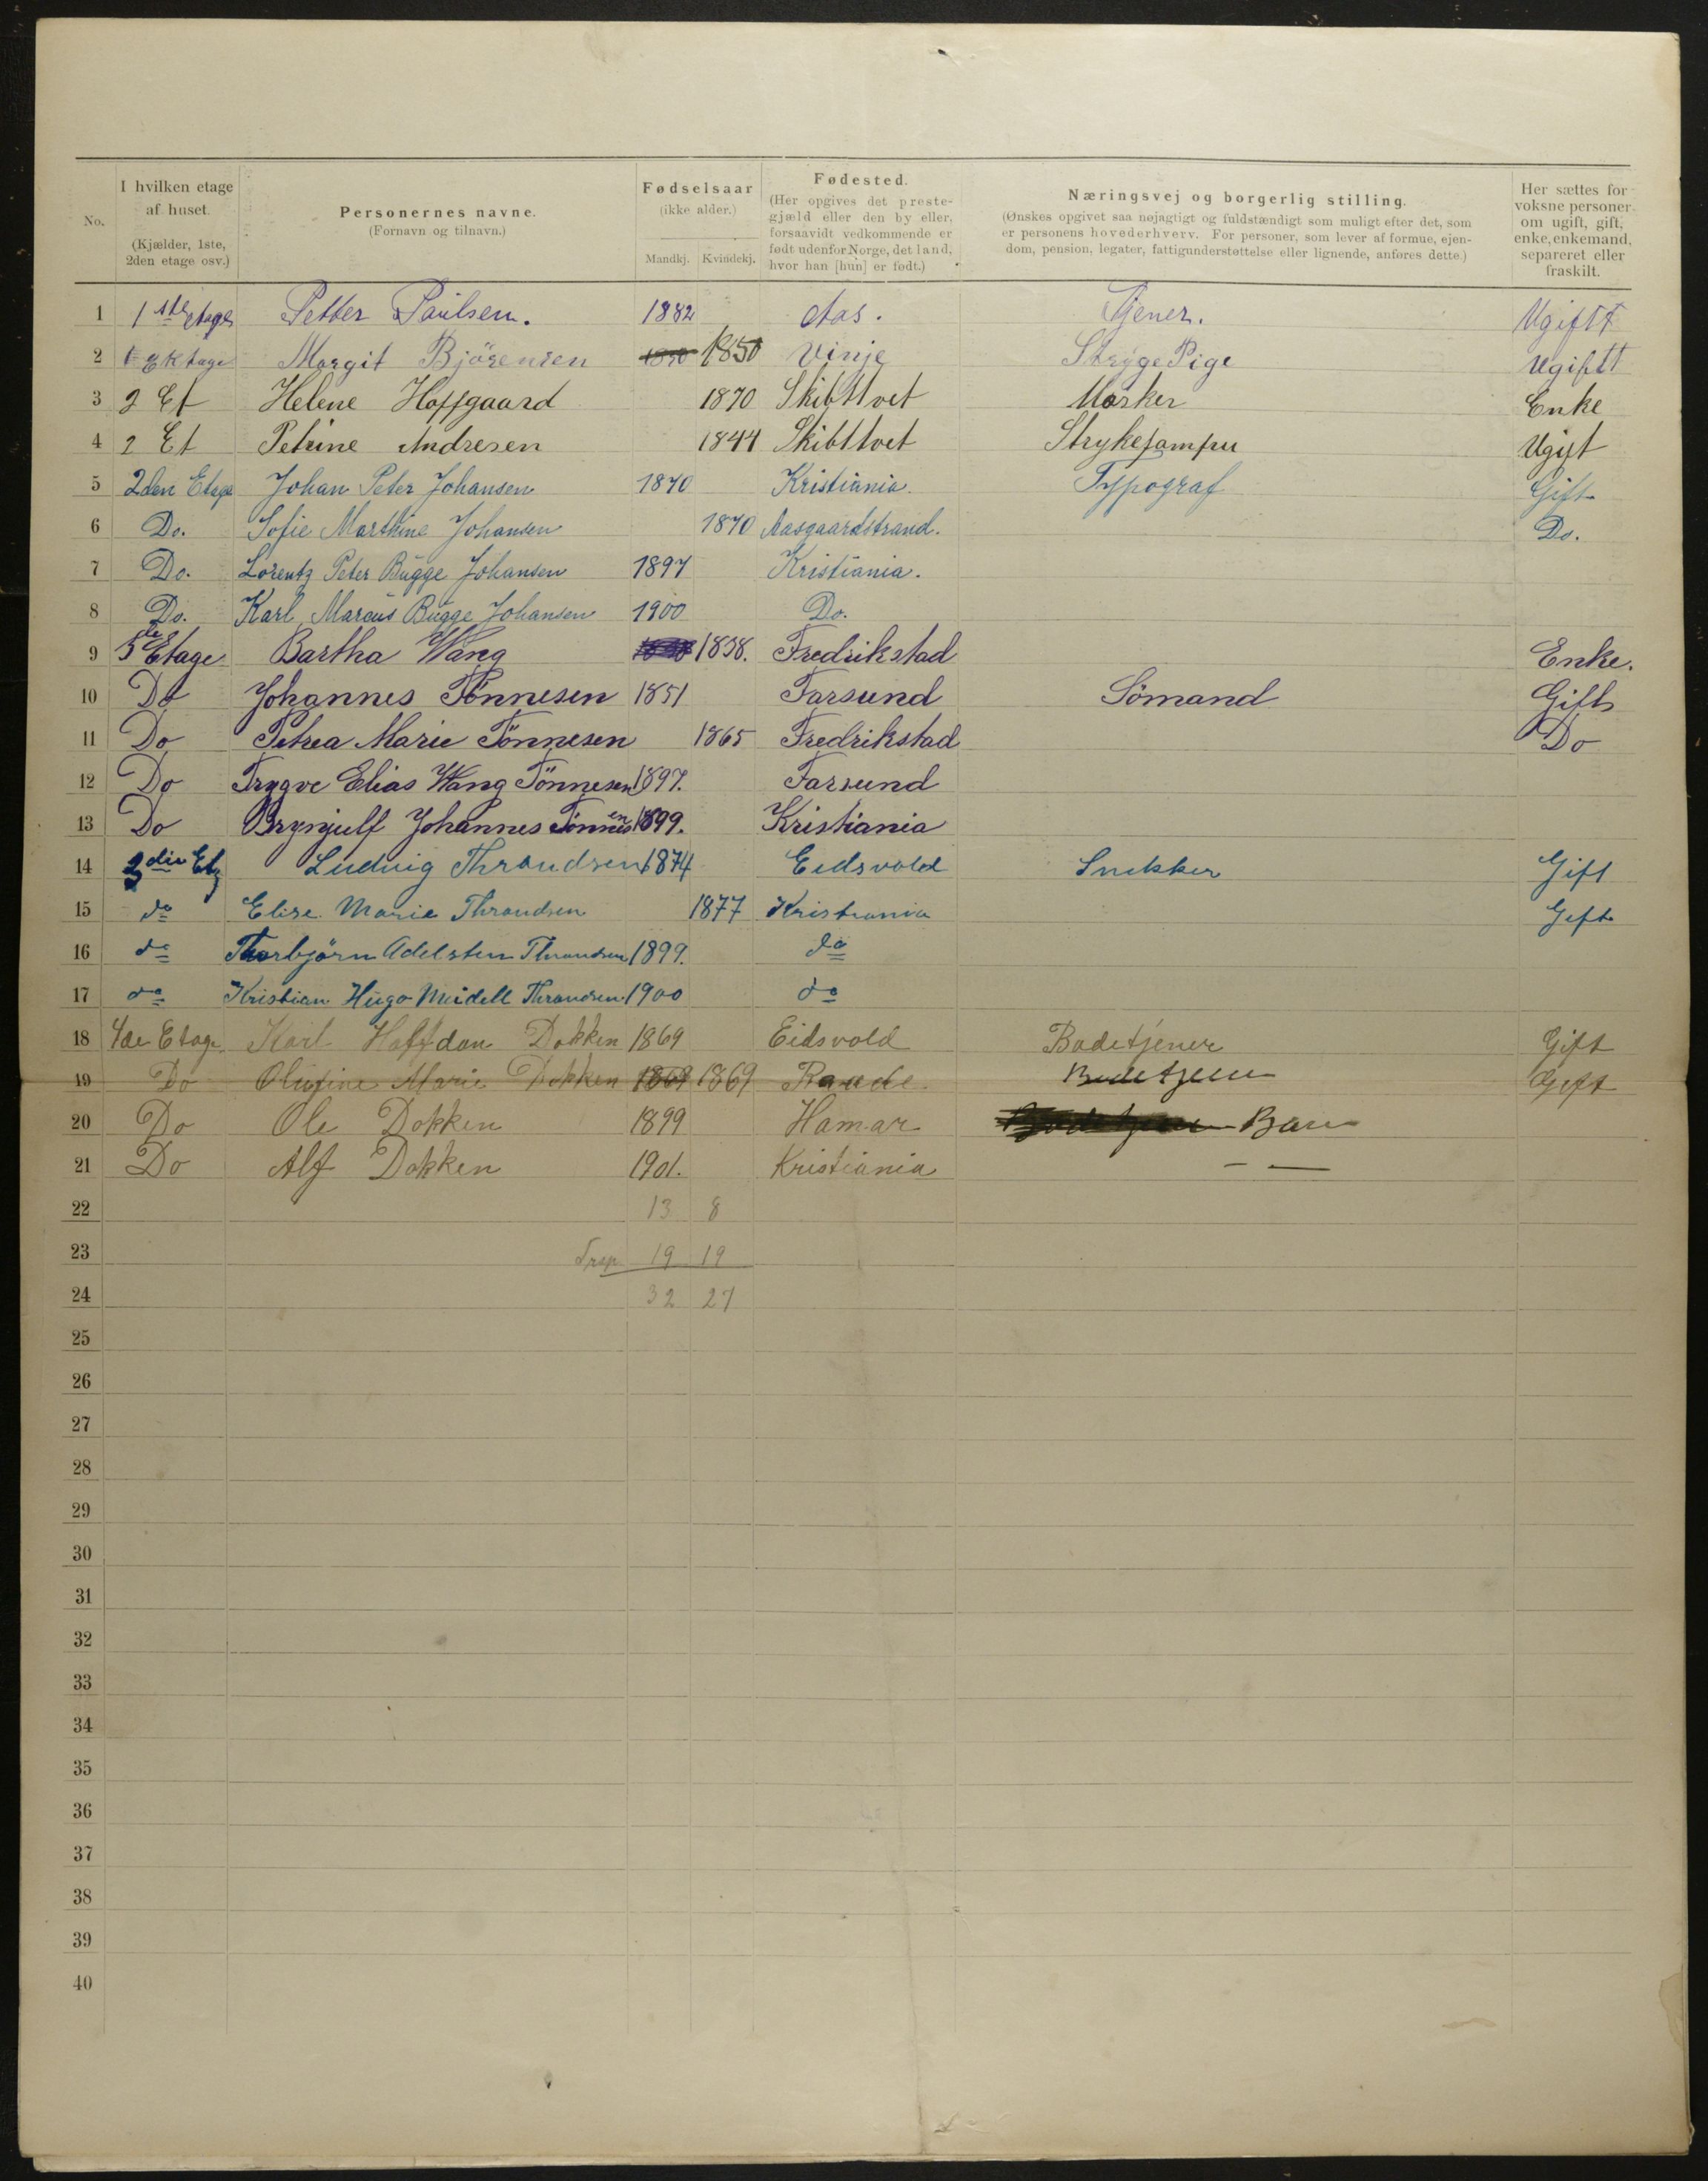 No.
I hvilken etage af huset. (Kjælder, 1ste, 2den etage osv.)
Personernes navne. (Fornavn og tilnavn.)
Fødselsaar (ikke alder.) Mandkj. Kvindekj.
Fødested. (Her opgives det prestegjæld eller den by eller, forsaavidt vedkommende er født udenfor Norge, det land, hvor han [hun] er født.)
Næringsvej og borgerlig stilling. (Ønskes opgivet saa nøjagtigt og fuldstændigt som muligt efter det, som er personens hovederhverv. For personer, som lever af formue, ejendom, pension, legater, fattigunderstøttelse eller lignende, anføres dette.)
Her sættes for voksne personer om ugift, gift, enke, enkemand, separeret eller fraskilt.
1 1ste Etage Petter Paulsen. 1882 Aas. Tjener. Ugiftt
2 Margit Björensen 1850 1850 Vinje Stryge Pige Ugiftt
3 2 Et Helene Hoffgaard 1870 Skibttvet Enke
4 2 Et Petrine Andresen 1844 Skibttvet Ugift
5 2den Etage Johan Peter Johansen 1870 Kristiania. Typograf Gift
6 Do. Sofie Marthine Johansen 1870 Aasgaardstrand. Do.
7 Do. Lorentz Peter Bugge Johansen 1897 Kristiania.
8 Do. Karl Marcus Bugge Johansen 1900 Do.
9 Etage Bartha Wang 1838. Fredrikstad Enke.
10 Do Johannes Tönnesen 1851 Farsund Sömand Gift
11 Do Petrea Marie Tönnesen 1865 Fredrikstad Do
12 Do Trygve Elias Wang Tönnesen 1897. Farsund
13 Do Brynjulf Johannes Tönnesen 1899. Kristiania
14 3die Etg Ludvig Throndsen 1874 Eidsvold Snekker Gift
15 do Elise Marie Throndsen 1877 Kristiania Gift
16 do Thorbjörn Adelsten Throndsen 1899. do
17 do Kristian Hugo Meidell Throndsen 1900 do
18 4de Etage Karl Halfdan Dokken 1869 Eidsvold Badetjener Gift
19 Do Olufine Marie Dokken 1869 1869 Raade Badetjener Gift
20 Do Ole Dokken 1899 Hamar Barn
21 Do Alf Dokken 1901. Kristiania — —
22 13 8
23 Trsp. 19 19
24 32 27
25
26
27
28
29
30
31
32
33
34
35
36
37
38
39
40